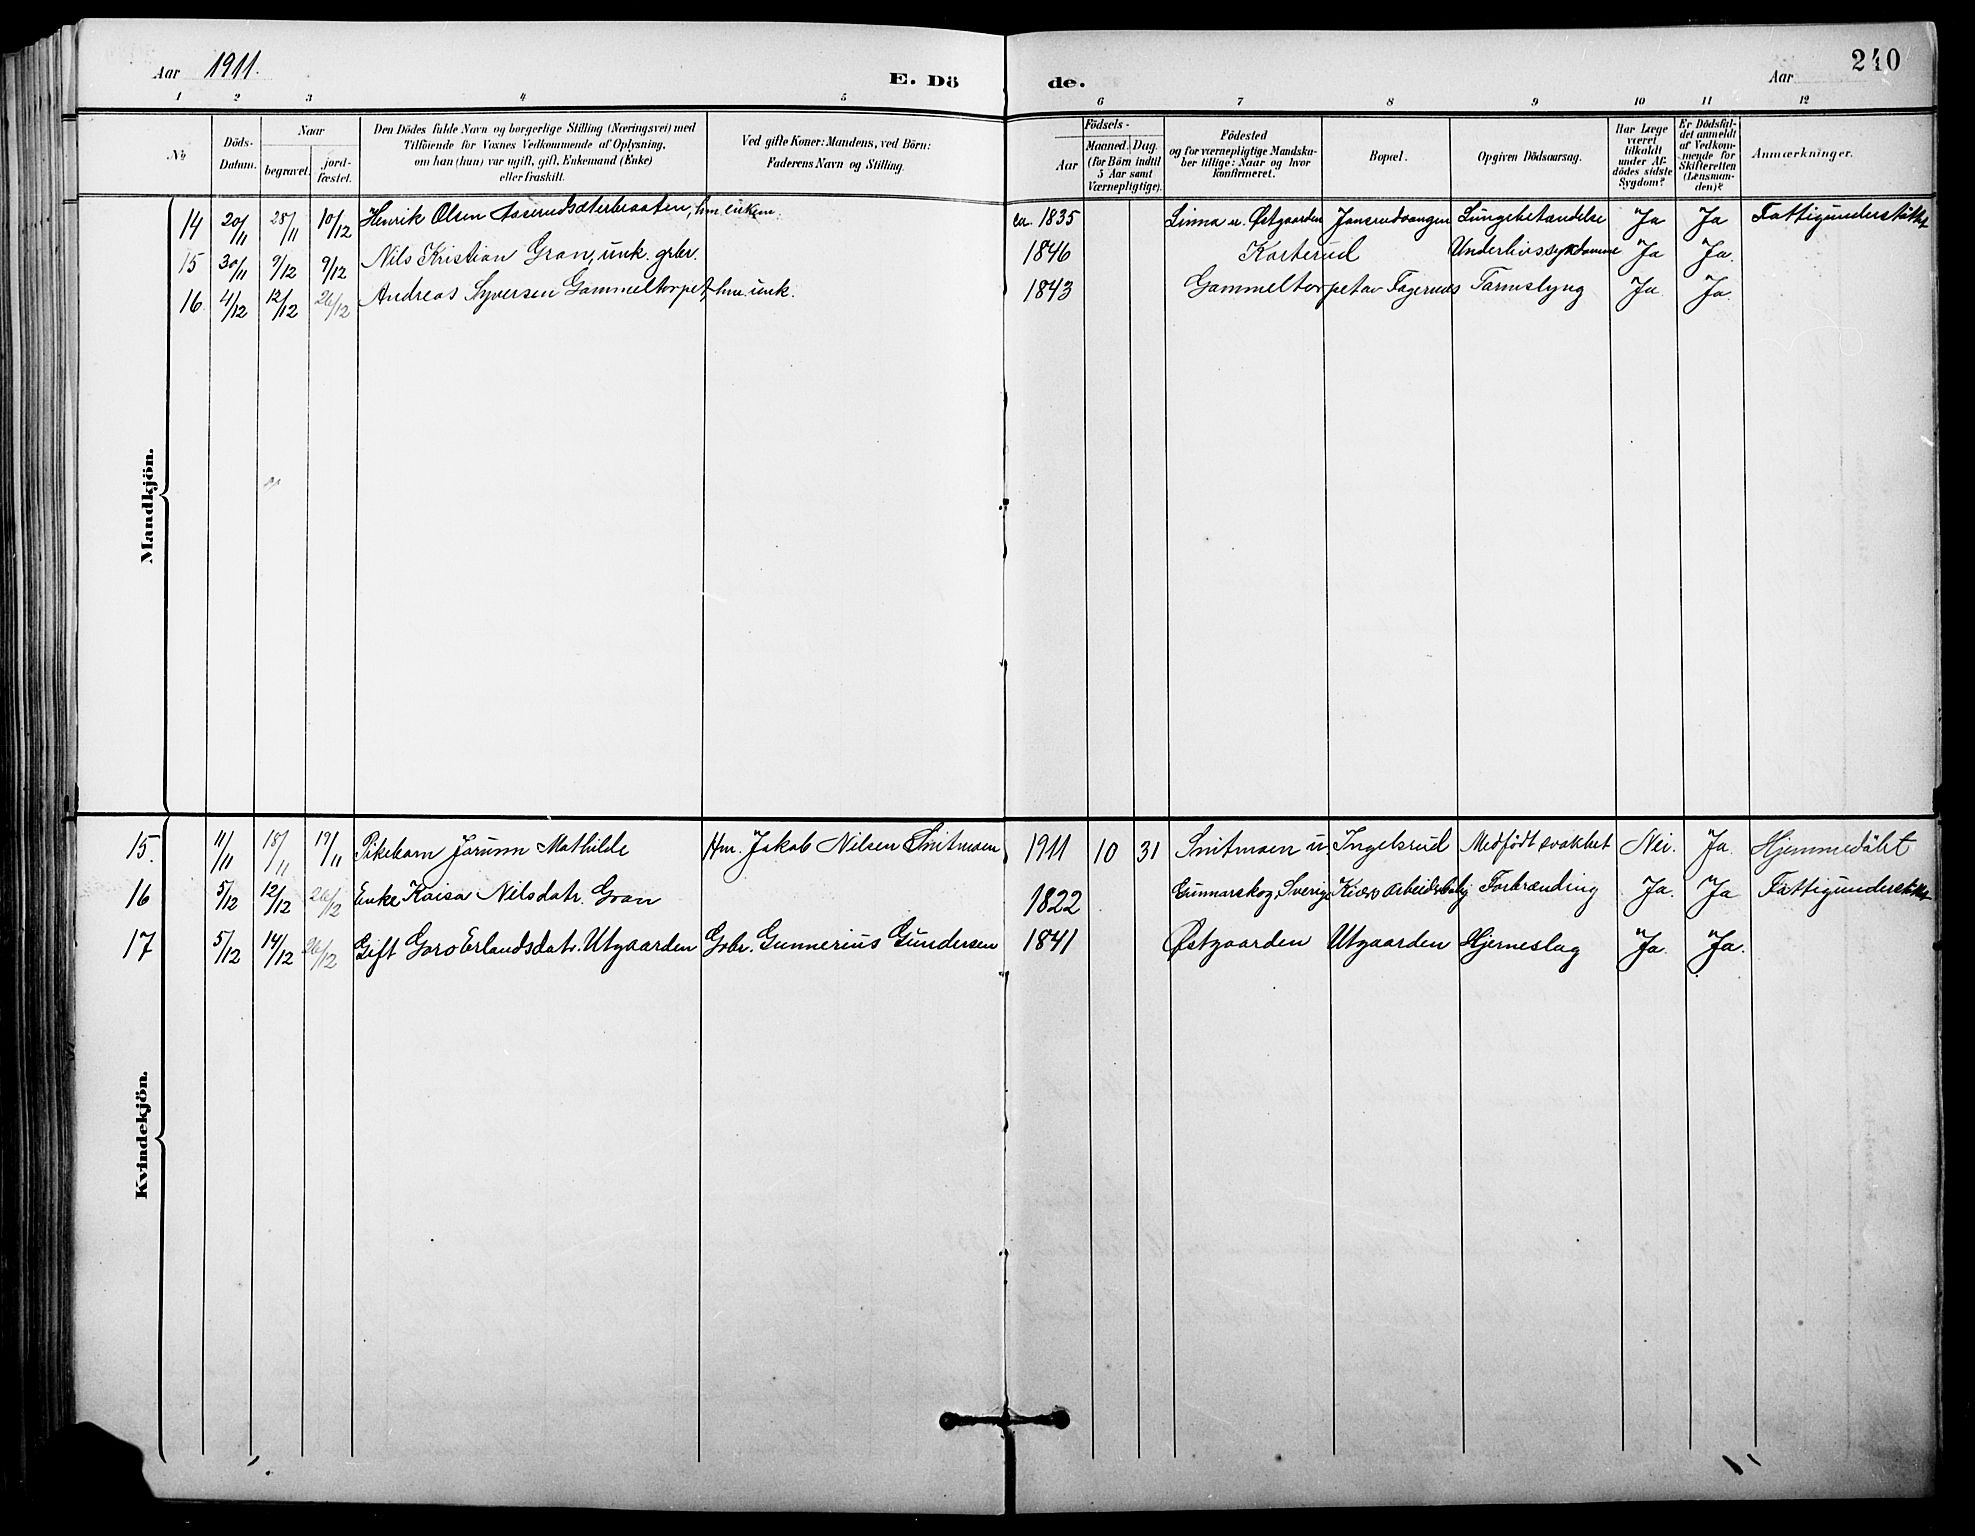 Aar 1911.
E. Dö de.
Aar
240
1 2 3 4 5 6 7 8 9 10 11 12
No
Döds-Datum.
Naar
begravet.
jord-fæstet.
Den Dödes fulde Navn og borgerlige Stilling (Næringsvei) med
Tilföiende for Voxnes Vedkommende af Oplysning,
om han (hun) var ugift, gift, Enkemand (Enke)
eller fraskilt.
Ved gifte Koner: Mandens, ved Börn:
Faderens Navn og Stilling.
Födsels-
Aar
Maaned. Dag.
(for Börn indtil
5 Aar samt
Værnepligtige).
Födested
og for værnepligtige Mandska-
ber tillige: Naar og hvor
konfirmeret.
Bopæl.
Opgiven Dödsaarsag.
Har Læge
været
tilkaldt
under Af-
dödes sidste
Sygdom?
Er Dödsfal-
det anmeldt
af Vedkom-
mende for
Skifteretten
(Lensman-
den)?
Anmærkninger.
Mandkjön.
14 20/11 28/11 10/12 Henrik Olsen Aaserudsæterbraaten, hm. enkem. ca. 1835 Linna u. Østgaarden Jansrudvangen Lungebetændelse Ja Ja Fattigunderstøttet
15 30/11 9/12 9/12 Nils Kristian Gran, unk. grbr. 1846 Korterud Underlivssykdomme Ja Ja.
16 4/12 12/12 26/12 Andreas Syversen Gammeltorpet, hm. unk. 1843 Gammeltorpet av Fagernes Tarmslyng Ja Ja.
Kvindekjön.
15. 11/11 18/11 19/11 Pikebarn Jorunn Mathilde Hm. Jakob Nilsen Snitmoen 1911 10 31 Snitmoen u. Ingelsrud Medfødt svakhet Nei. Ja. Hjemmedøbt
16 5/12 12/12 26/12 Enke Kaisa Nilsdatr. Gran 1822 Gunnarskog, Sverige Kiærs Forbrænding Ja. Ja Fattigunderstøttet
17 5/12 14/12 26/12 Gift Goro Erlandsdatr. Utgaarden Grbr. Gunnerius Gundersen 1841 Østgaarden Utgaarden Hjerneslag Ja. Ja.